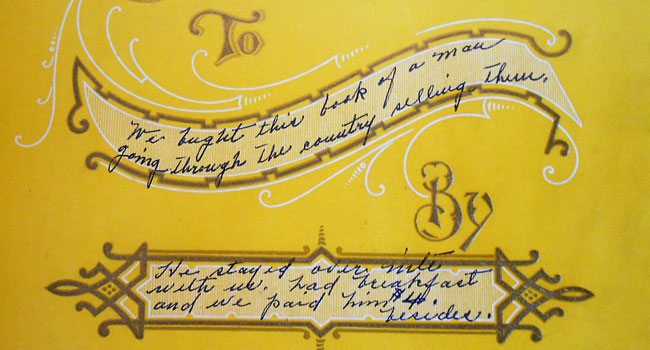 To
We bught this book of a man
going through the country selling them.
By
He stayed over nite
with us. had breakfast
and we paid him $4.
besides.